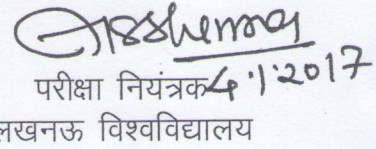 परीक्षा नियंत्रक 4.1.2017
लखनऊ विश्वविद्यालय